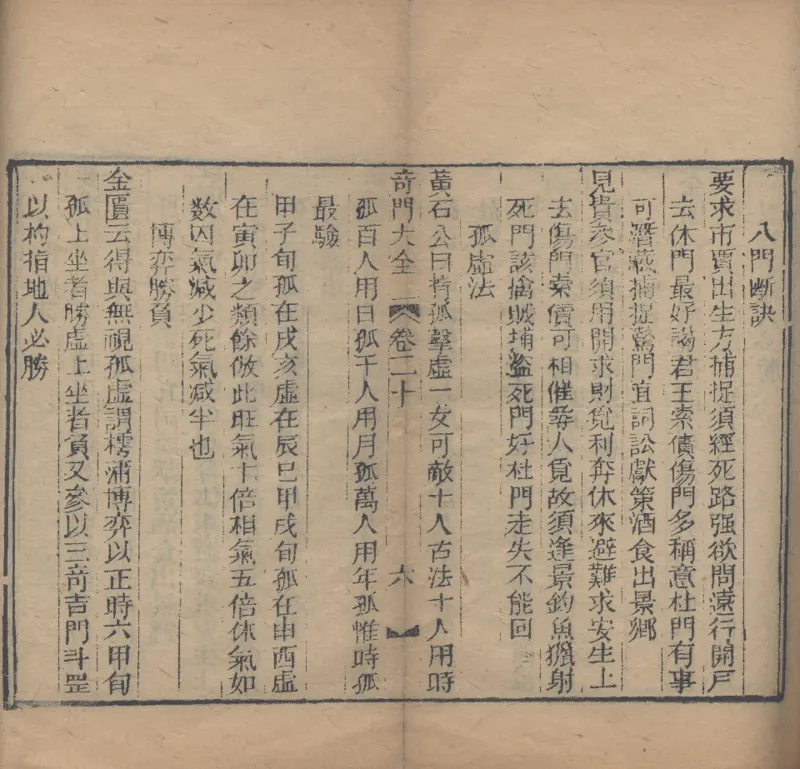 八門斷訣
要求市賈出生方捕捉須經死路强欲問遠行開戸
去休門最好謁君王索債傷門多稱意杜門有事
可潛藏捕捉驚門宜詞訟獻策酒食出景鄉
見貴參官須用開求財覓利奔休來避難求安生上
去傷門索價可相催尋人覓故須逢景釣魚獵射
死門該擒賊埔盜死門好杜門走失不能回
孤虛法
黃石公曰背孤擊虛一女可敵十人古法十人用時
奇門大全 卷二十 六
孤百人用日孤千人用月孤萬人用年孤惟時孤
最驗
甲子旬孤在戌亥虛在辰巳甲戌旬孤在申酉虛
在寅卯之類餘倣此旺氣十倍相氣五倍休氣如
数囚氣減少死氣減半也
博弈勝負
金匱云得與無視孤虛謂樗蒲博弈以正時六甲旬
孤上坐者勝虛上坐者負又參以三奇吉門斗罡
以杓指地人必勝